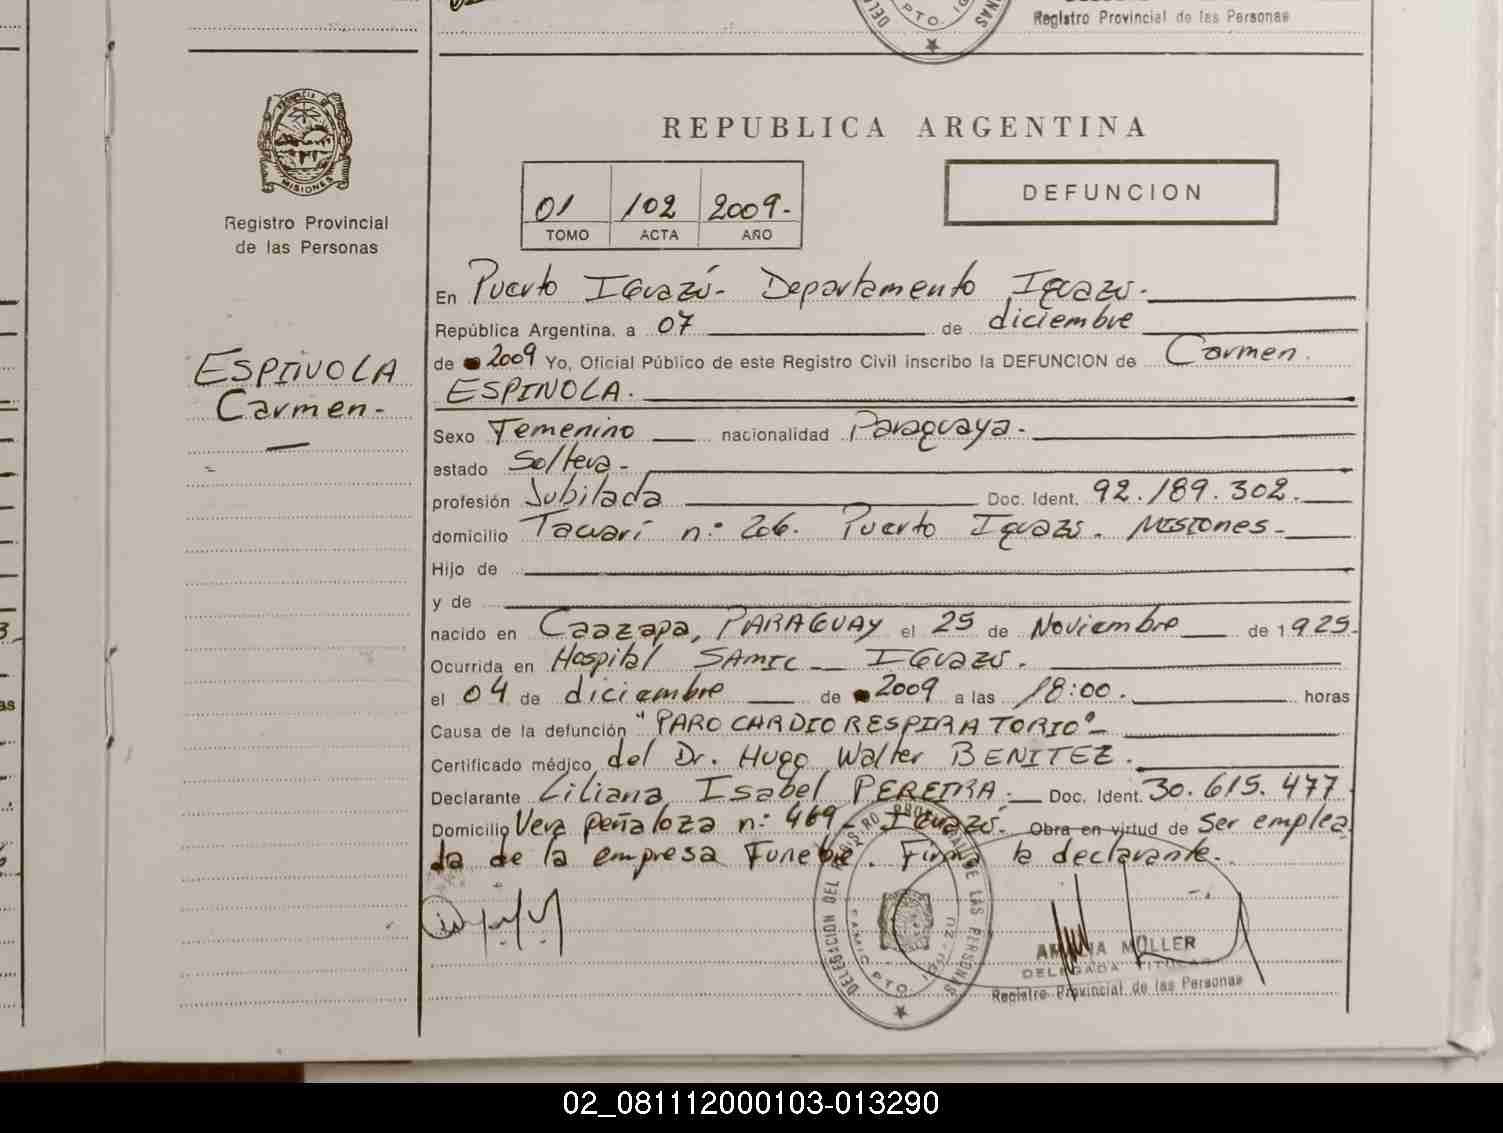 Registro Provincial de las Personas
PROVINCIA DE
MISIONES
Registro Provincial
de las Personas
ESPINOLA
Carmen-
REPUBLICA ARGENTINA
01 102 2009-
TOMO ACTA AÑO
DEFUNCION
En Puerto Iguazú- Departamento Iguazú-
República Argentina, a 07 de diciembre
de 2009 Yo, Oficial Público de este Registro Civil inscribo la DEFUNCION de Carmen.
ESPINOLA.
Sexo Femenino nacionalidad Paraguaya-
estado Soltera-
profesión Jubilada Doc. Ident. 92.189.302.
domicilio Tacuarí n:º 206. Puerto Iguazú. Misiones-
Hijo de
y de
nacido en Caazapa, PARAGUAY el 25 de Noviembre de 1925-
Ocurrida en Hospital SAMIC - Iguazú.
el 04 de diciembre de 2009 a las 18:00. horas
Causa de la defunción "PARO CARDIO RESPIRATORIO"-
Certificado médico del Dr. Hugo Walter BENITEZ.
Declarante Liliana Isabel PEREIRA- Doc. Ident. 30.615.477
Domicilio Vera Peñaloza n:º 469- Iguazú- Obra en virtud de ser emplea
da de la empresa Funebre. Firma la declarante-
DELEGACION DEL REGISTRO PROVINCIAL DE LAS PERSONAS
MULLER
DELEGADA TITULAR
Registro Provincial de las Personas
02_081112000103-013290